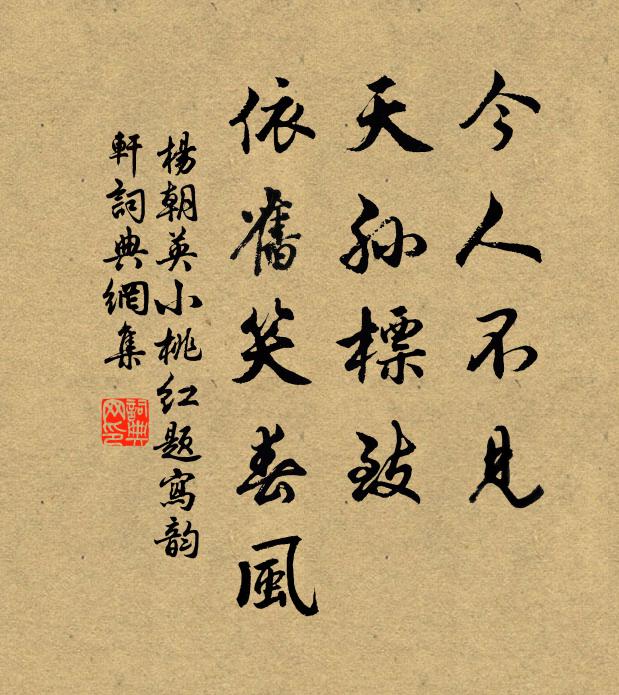 今人不見
天孫標致
依舊笑春風
楊朝英小桃红題寫韵
軒詞典網集
詞典网印